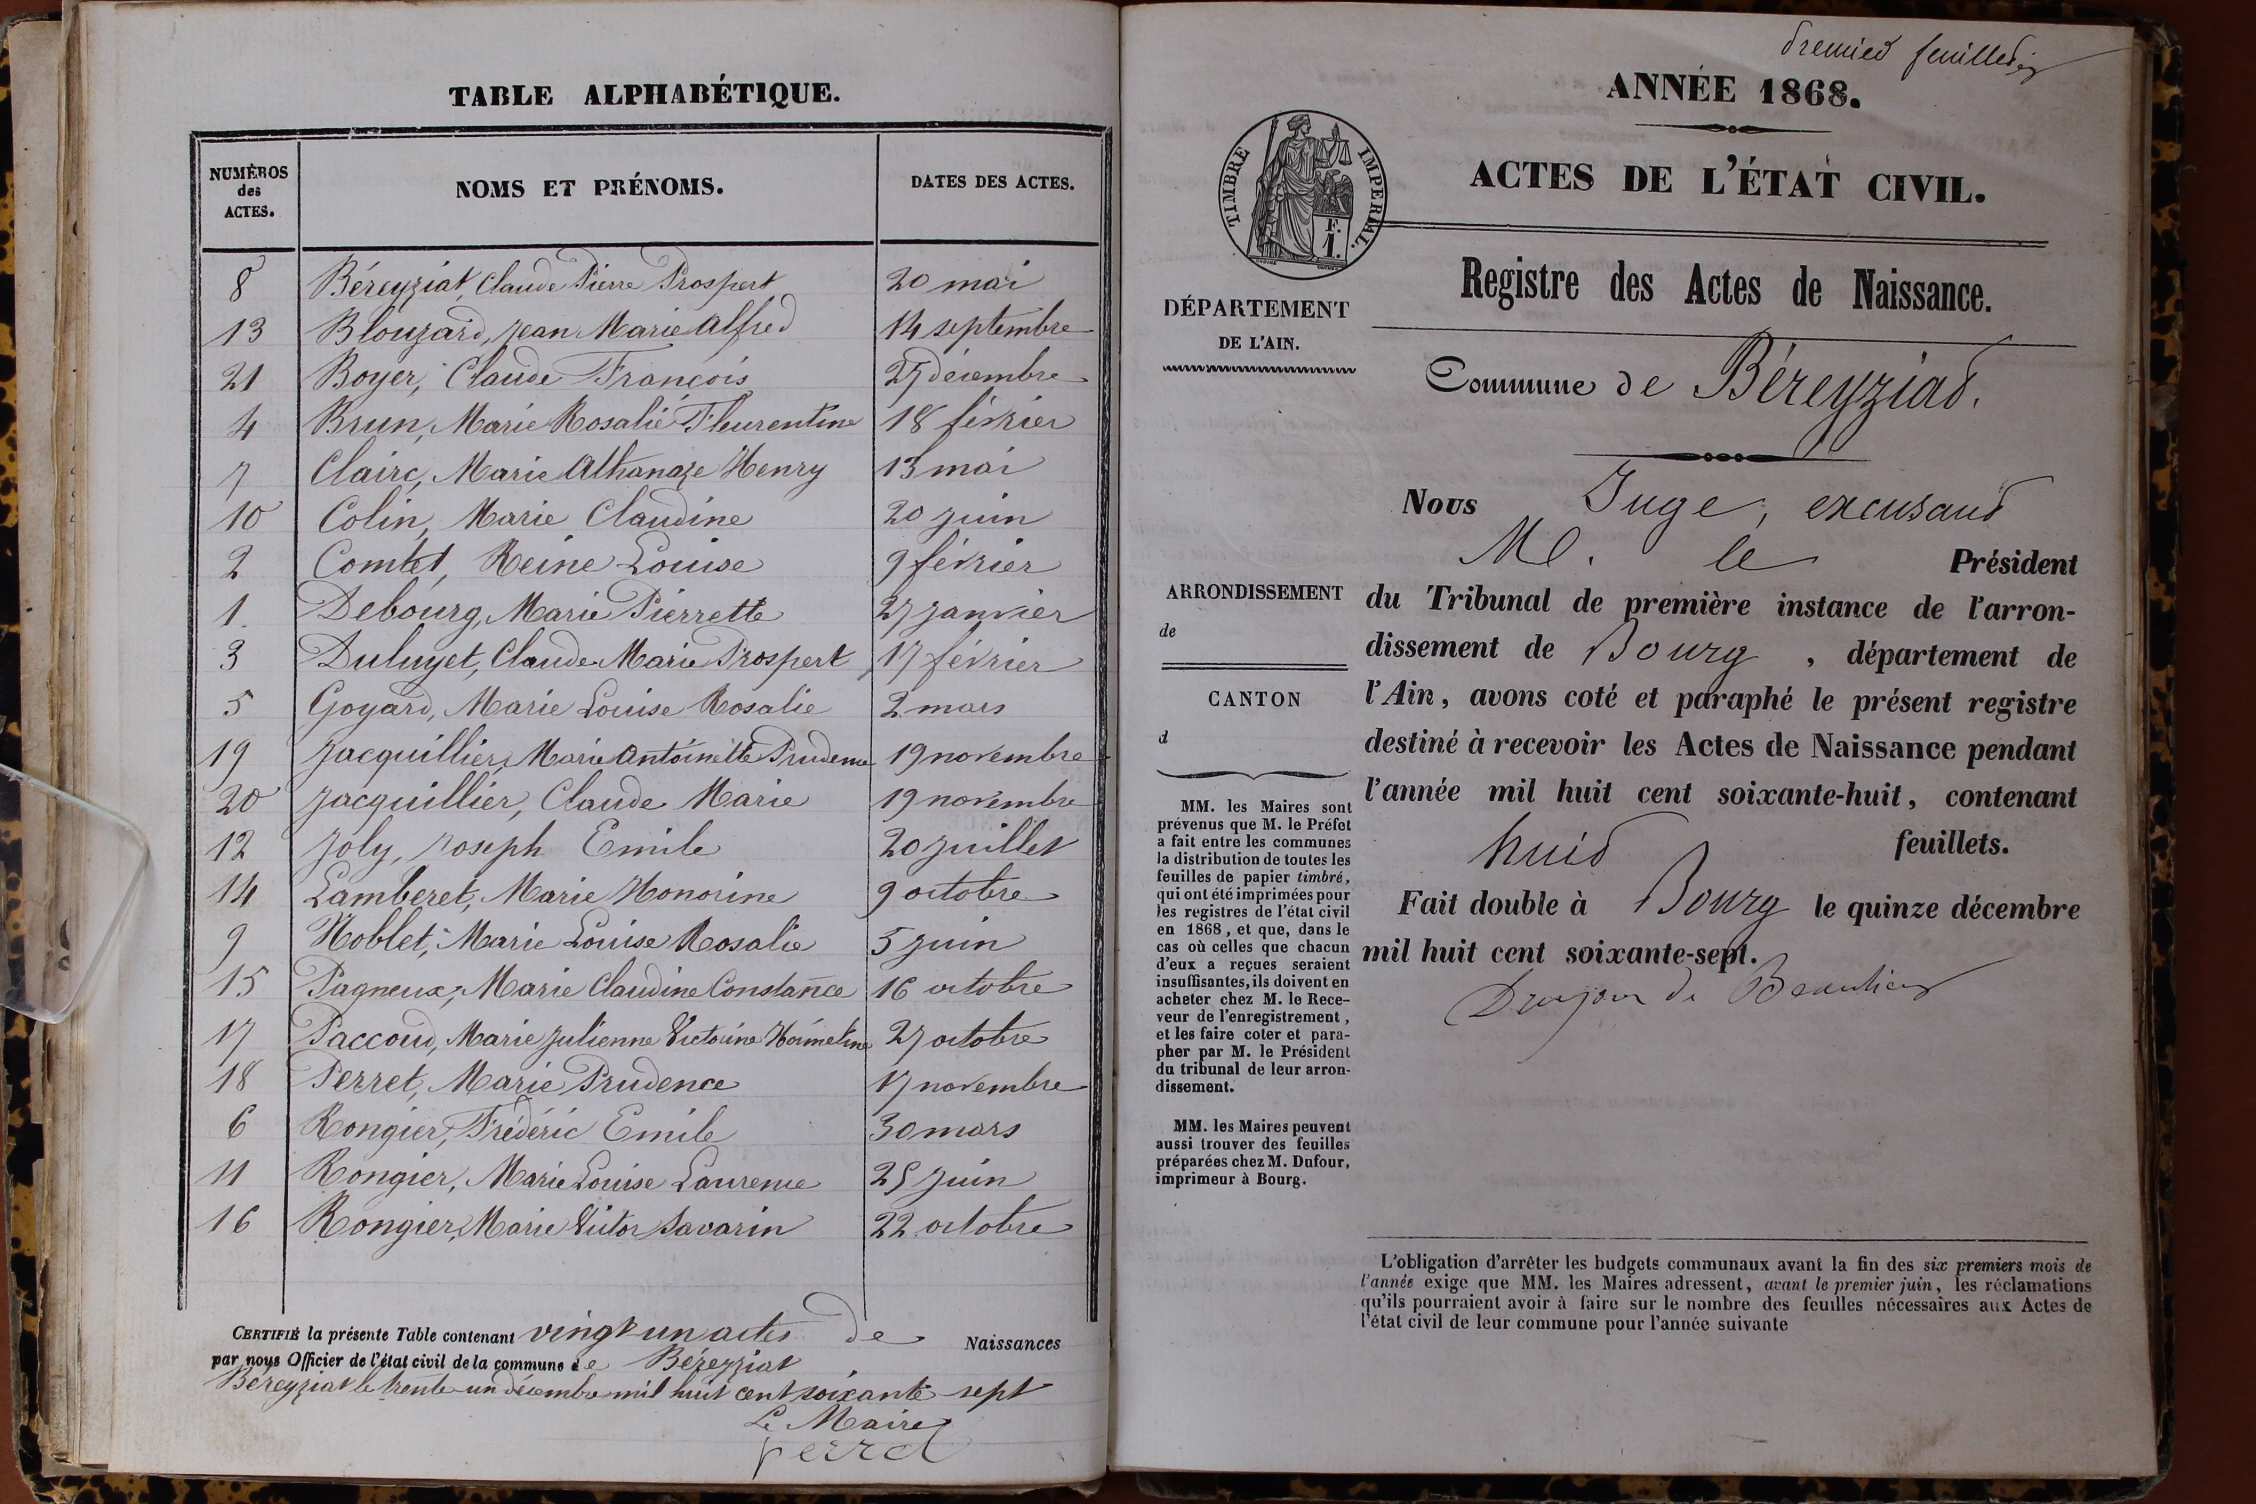 TABLE ALPHABÉTIQUE.
NUMÉROS des ACTES. NOMS ET PRÉNOMS. DATES DES ACTES.
8 Béreyziat, Claude Pierre Prospert 20 mai
13 Blouzard, Jean Marie Alfred 14 septembre
21 Boyer, Claude François décembre
4 Brun, Marie Rosalie Fleurentine 18 février
7 Claire, Marie Athanaze Henry 13 mai
10 Colin, Marie Claudine 20 juin
2 Comtet, Reine Louise 9 février
1 Debourg, Marie Pierrette 27 janvier
3 Duluyet, Claude Marie Prospert 17 février
5 Goyard, Marie Louise Rosalie 2 mars
19 Jacquillier, Marie Antoinette Prudence 19 novembre
20 Jacquillier, Claude Marie 19 novembre
12 Joly, Joseph Emile 20 juillet
14 Lamberet, Marie Honorine 9 octobre
9 Noblet, Marie Louise Rosalie 5 juin
15 Pagneux, Marie Claudine Constance 16 octobre
17 Paccoud, Marie Julienne Victorine 27 octobre
18 Perret, Marie Prudence 17 novembre
6 Rongier, Frédéric Emile 30 mars
11 Rongier, Marie Louise Laurence 25 juin
16 Rongier, Marie Victor Savarin 22 octobre
CERTIFIÉ la présente Table contenant vingt-un actes de Naissances
par nous Officier de l'état civil de la commune de Béreyziat
Béreyziat le trente-un décembre mil huit cent soixante-sept
Le Maire
Perret
premier feuillet
ANNÉE 1868.
ACTES DE L'ÉTAT CIVIL.
TIMBRE IMPÉRIAL.
F.
1.
Registre des Actes de Naissance.
DÉPARTEMENT
DE L'AIN.
Commune de Béreyziat.
Nous Juge, excusant
M. le Président
du Tribunal de première instance de l'arron-
dissement de Bourg, département de
l'Ain, avons coté et paraphé le présent registre
destiné à recevoir les Actes de Naissance pendant
l'année mil huit cent soixante-huit, contenant
huit feuillets.
Fait double à Bourg le quinze décembre
mil huit cent soixante-sept.
de Beaulieu
ARRONDISSEMENT
de
CANTON
d
MM. les Maires sont
prévenus que M. le Préfet
a fait entre les communes
la distribution de toutes les
feuilles de papier timbré,
qui ont été imprimées pour
les registres de l'état civil
en 1868, et que, dans le
cas où celles que chacun
d'eux a reçues seraient
insuffisantes, ils doivent en
acheter chez M. le Rece-
veur de l'enregistrement,
et les faire coter et para-
pher par M. le Président
du tribunal de leur arron-
dissement.
MM. les Maires peuvent
aussi trouver des feuilles
préparées chez M. Dufour,
imprimeur à Bourg.
L'obligation d'arrêter les budgets communaux avant la fin des six premiers mois de
l'année exige que MM. les Maires adressent, avant le premier juin, les réclamations
qu'ils pourraient avoir à faire sur le nombre des feuilles nécessaires aux Actes de
l'état civil de leur commune pour l'année suivante